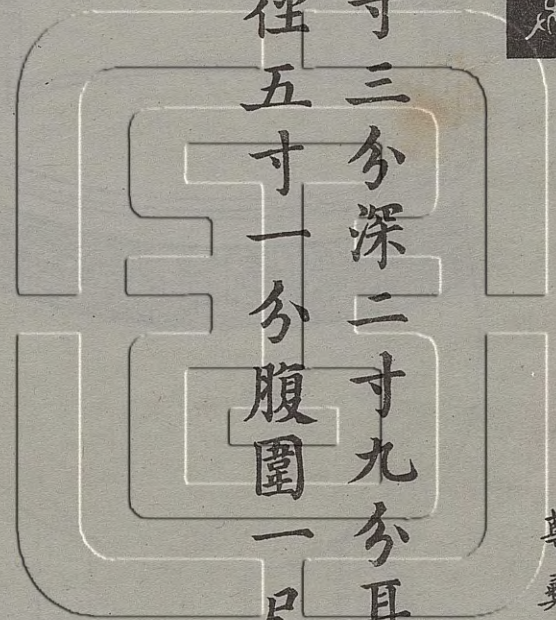 寸三分深二寸九分耳
徑五寸一分腹圍一尺